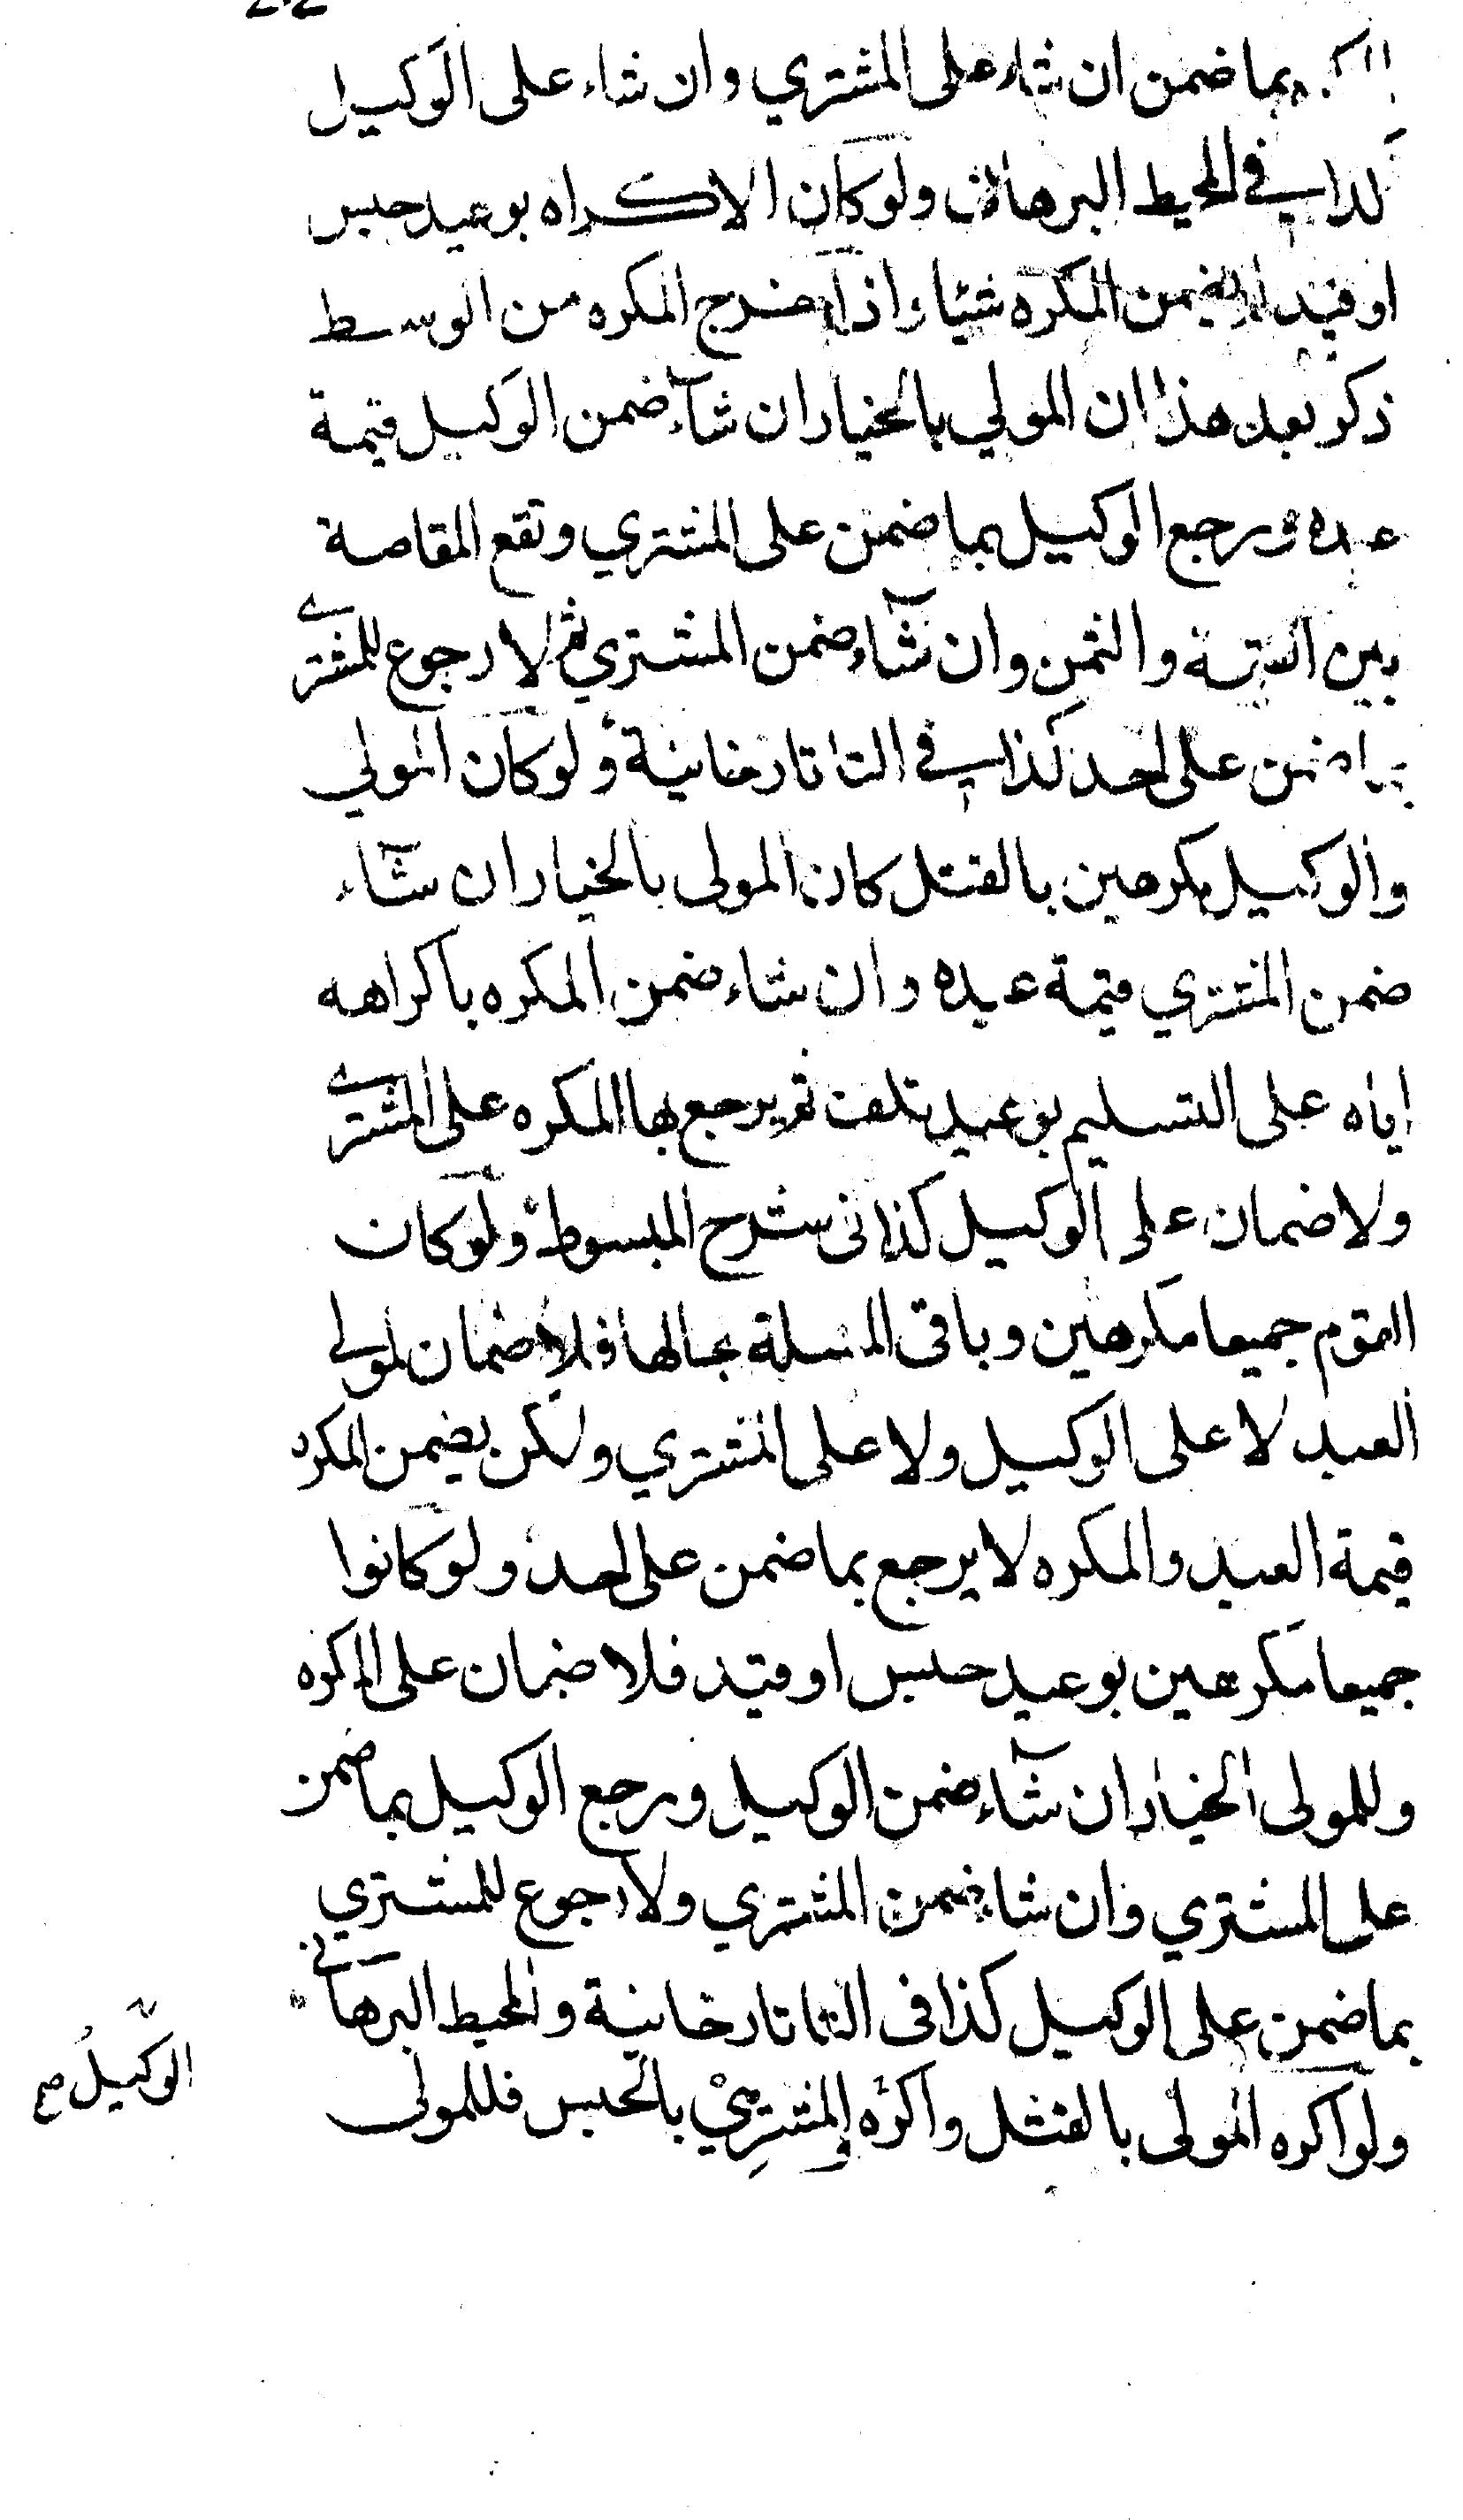 المكره بما ضمن ان شاء على المشتري وان شاء على الوكيل
كذا في المحيط البرهاني ولو كان الاكراه بوعيد حبس
او قيد لم يضمن المكره شيئا واذا خرج المكره من الوسط
ذكر بعد هذا ان المولي بالخيار ان شآء ضمن الوكيل قيمة
عبده ورجع الوكيل بما ضمن على المشتري وتقع المقاصة
بين القيمة والثمن وان شآء ضمن المشتري ثم لا رجوع للمشتري
بما ضمن على احد كذا في التاتارخانية ولو كان المولي
والوكيل مكرهين بالقتل كان المولى بالخيار ان شآء
ضمن المشتري قيمة عبده وان شاء ضمن المكره باكراهه
اياه على التسليم بوعيد تلف ثم يرجع بها المكره على المشتري
ولا ضمان على الوكيل كذا فى شرح المبسوط ولو كان
القوم جميعا مكرهين وباقى المسلة بحالها فلا ضمان لمولى
العبد لا على الوكيل ولا على المشتري ولكن يضمن المكره
قيمة العبد والمكره لا يرجع بما ضمن على احد ولو كانوا
جميعا مكرهين بوعيد حبس او قيد فلا ضمان على المكره
وللمولى الخيار ان شآء ضمن الوكيل ورجع الوكيل بما ضمن
على المشتري وان شاء ضمن المشتري ولا رجوع للمشتري
بما ضمن على الوكيل كذا فى التاتارخانية والمحيط البرهاني
ولو اكره المولى بالقتل واكره المشتري بالحبس فللمولى
الوكيل صح